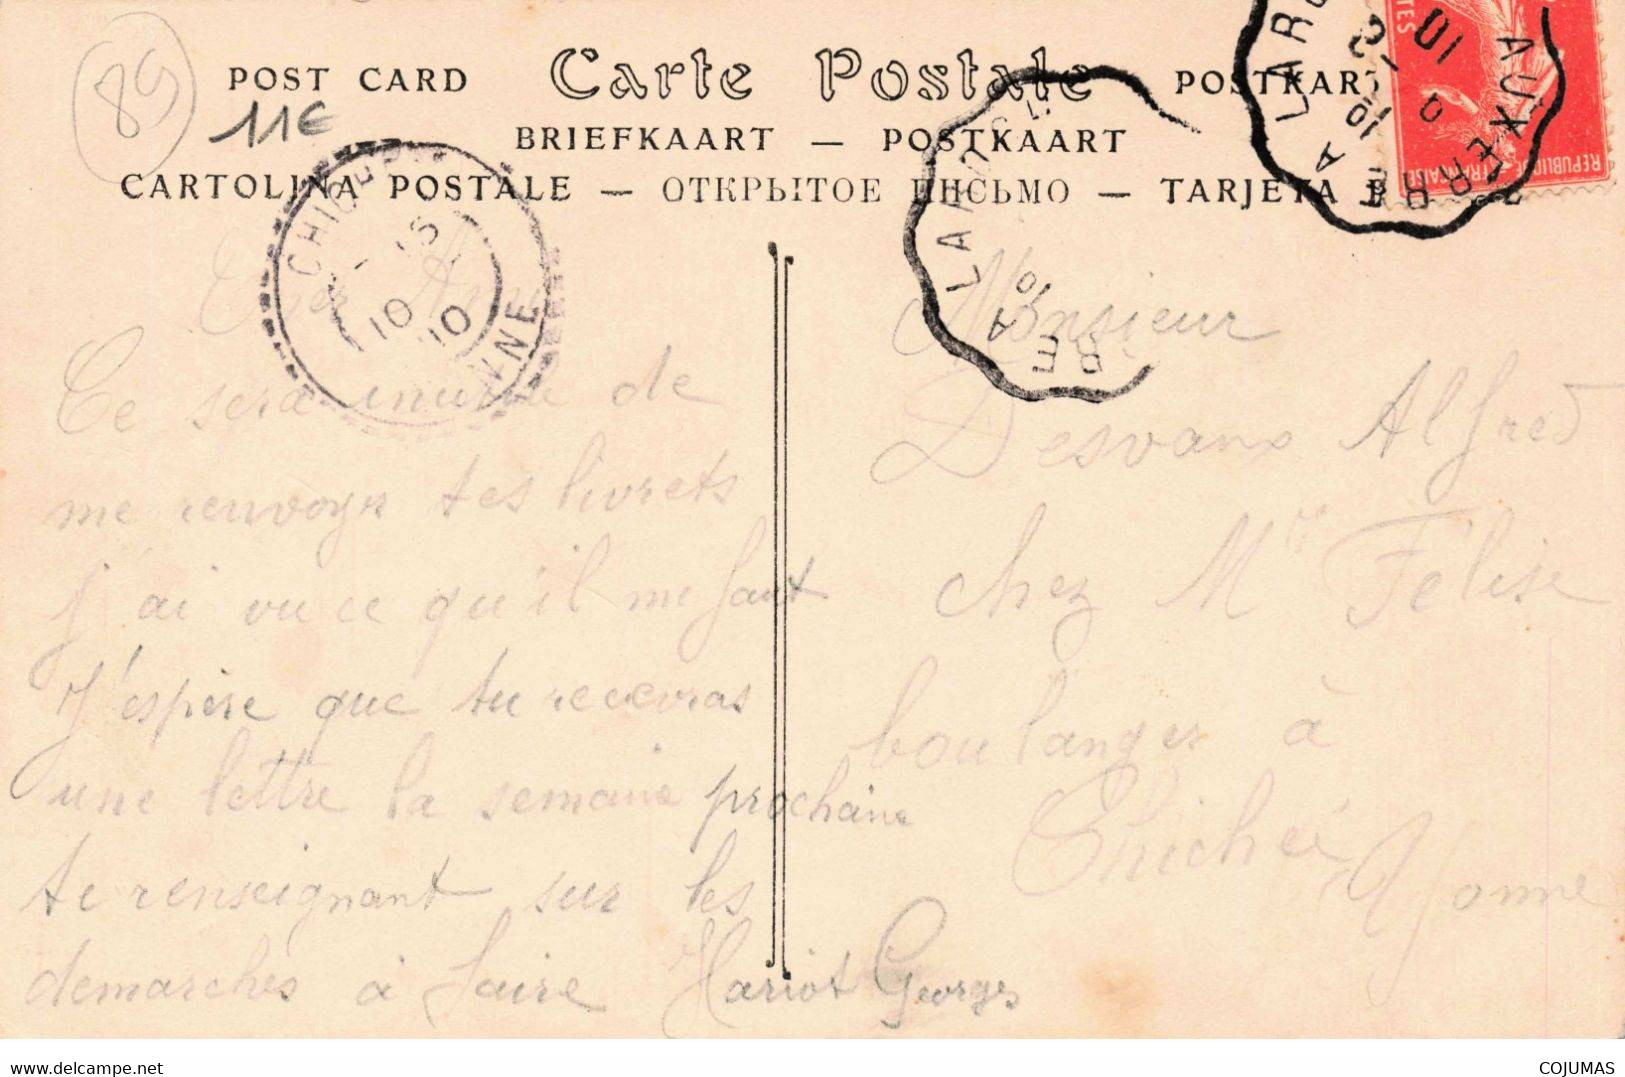 89
11€
POST CARD Carte Postale POSTKARTE
BRIEFKAART — POSTKAART
CARTOLINA POSTALE — ОТКРЫТОЕ ПИСЬМО — TARJETA
AUXERRE A LARO
9 10
10
REPUBLIQUE FRANÇAISE
POSTES
AUXERRE A LAROCHE
10
CHICHEE
YONNE
10 10
Cher Ami
Ce sera inutile de
me renvoyer tes livrets
j'ai vu ce qu'il me faut
J'espère que tu recevras
une lettre la semaine prochaine
te renseignant sur les
demarches à faire Hariot Georges
Monsieur
Desvaux Alfred
chez Mr Felise
boulanger à
Chichée Yonne
delcampe.net
COJUMAS